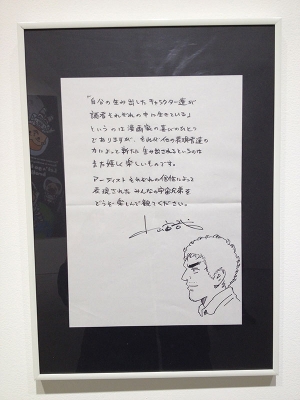 「自分の生み出したキャラクター達が
読者それぞれの中に生きている」
というのは漫画家の喜びのひとつ
でありますが、それが他の表現者達の
力によって新たに生み出されるというのは
また嬉しく楽しいものです。
アーティストそれぞれの個性によって
表現されたみんなの宇宙兄弟を
どうぞ楽しんで観てください。